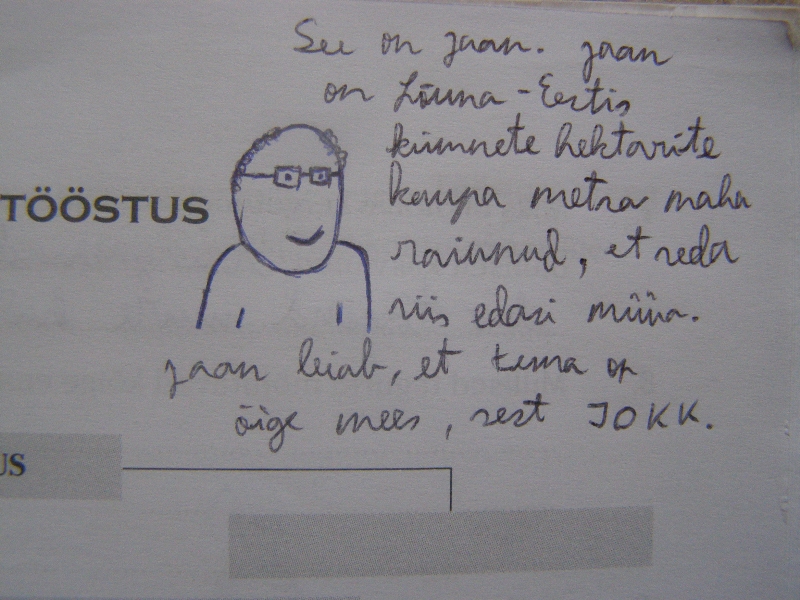 See on Jaan. Jaan
on Lõuna-Eestis
kümnete hektarite
TÖÖSTUS
kaupa metsa maha
raiunud, et seda
siis edasi müüa.
Jaan leiab, et tema on
õige mees, sest JOKK.
US